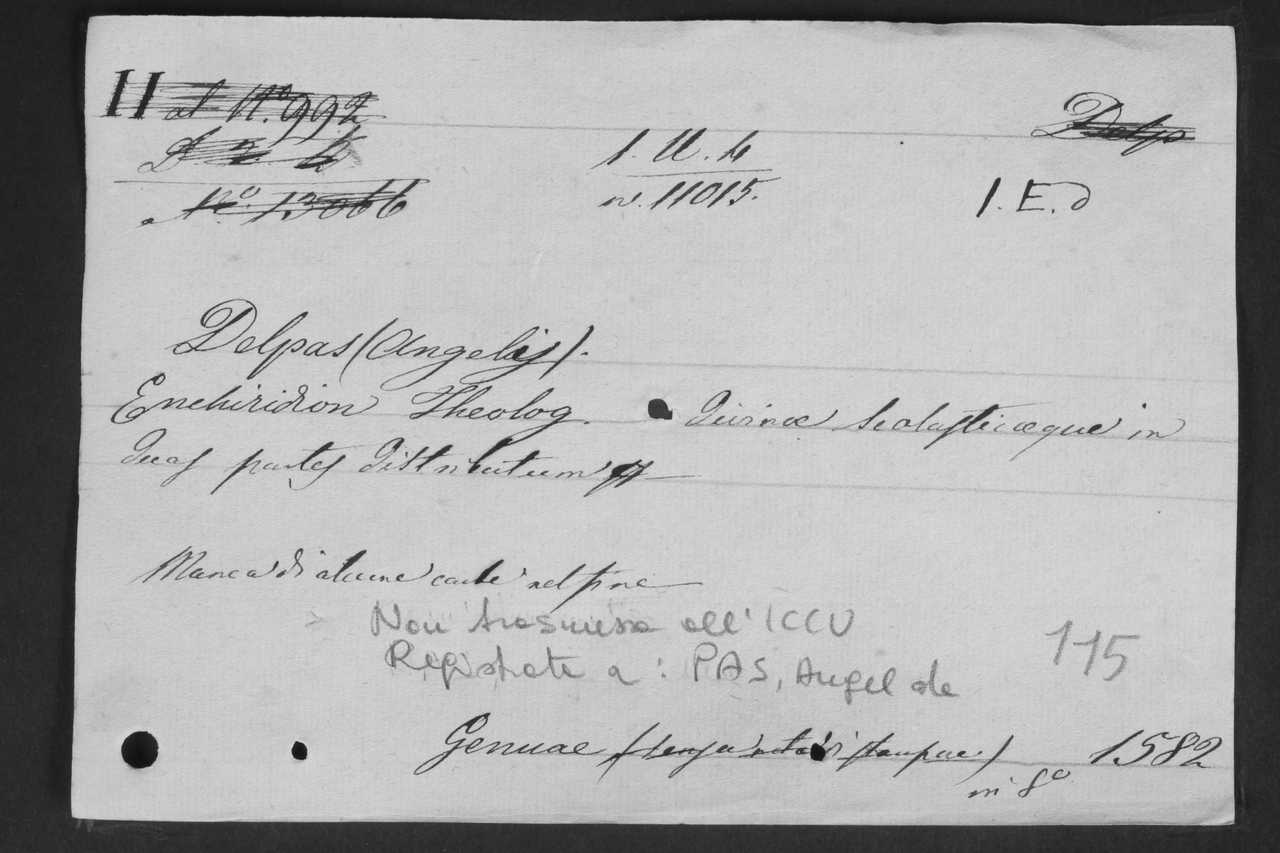 H al N.º 992 Delp
N.º 13066 1. U. 4
n. 11015. 1. E. d
Delpas (Angelij).
Enchiridion Theolog. divinæ scolasticæque in
duas partes distributum
Manca di alcune carte nel fine
Non trasmessa all'ICCU
Registrata a: PAS, Angel de
115
Genuae (senza nota di stampac.) 1582
in 8º